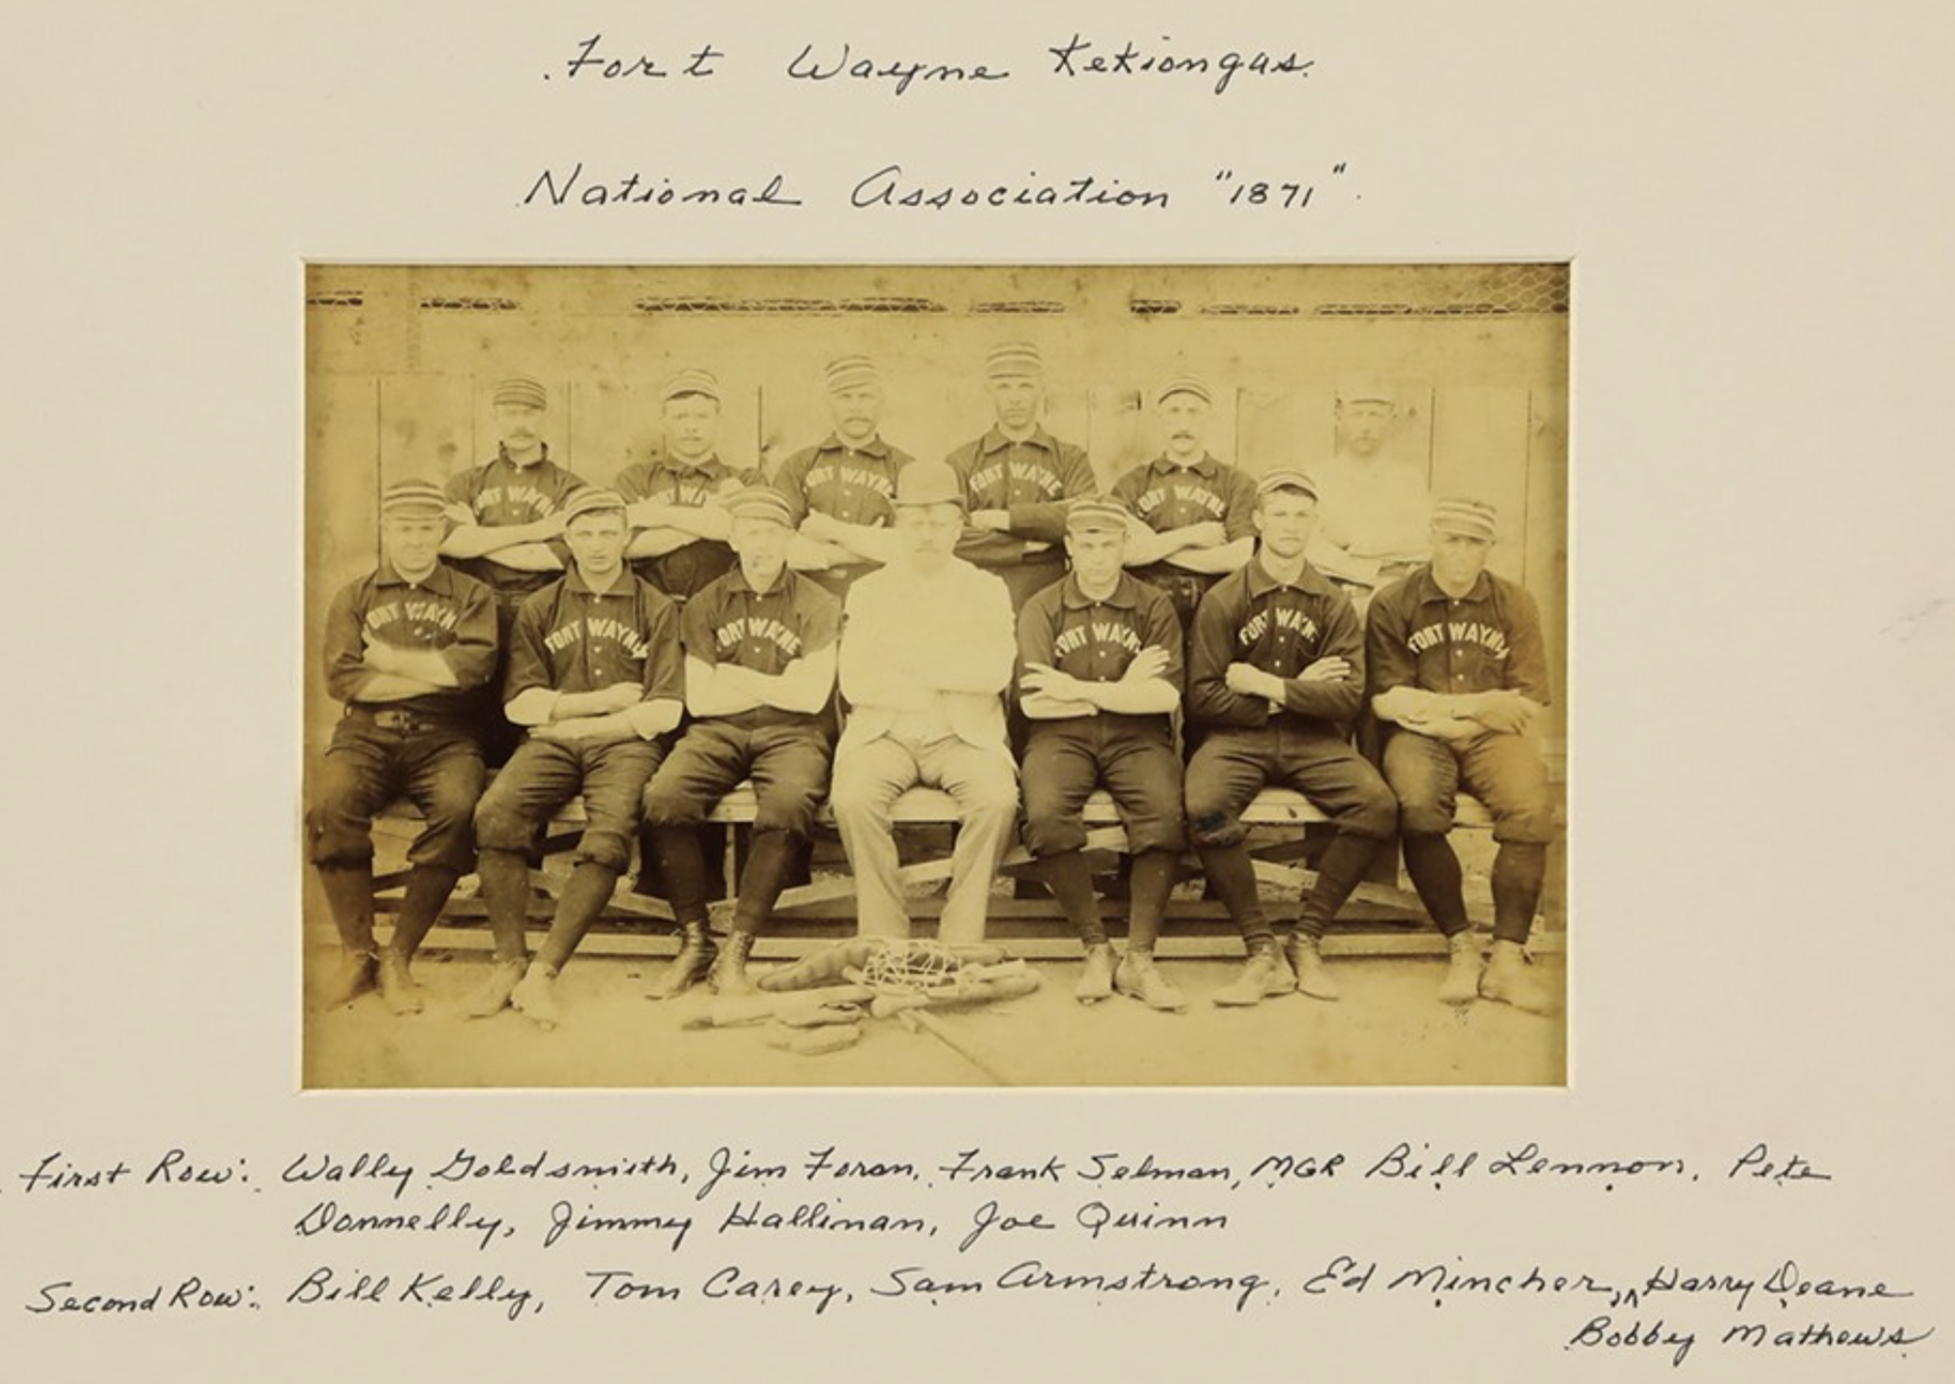 Fort Wayne Kekiongas.
National Association "1871".
FORT WAYN
FORT WAYNE
ORT WAYNE
FORT WAYNE
ORT WAYNE
FORT WAYN
FORT WAYNE
ORT WAYNE
ORT WAYNE
FORT WAYNE
FORT WAYNE
First Row: Wally Goldsmith, Jim Foran, Frank Selman, MGR Bill Lennon, Pete
Donnelly, Jimmy Hallinan, Joe Quinn
Second Row: Bill Kelly, Tom Carey, Sam Armstrong, Ed Mincher, ^ Harry Deane
Bobby Mathews